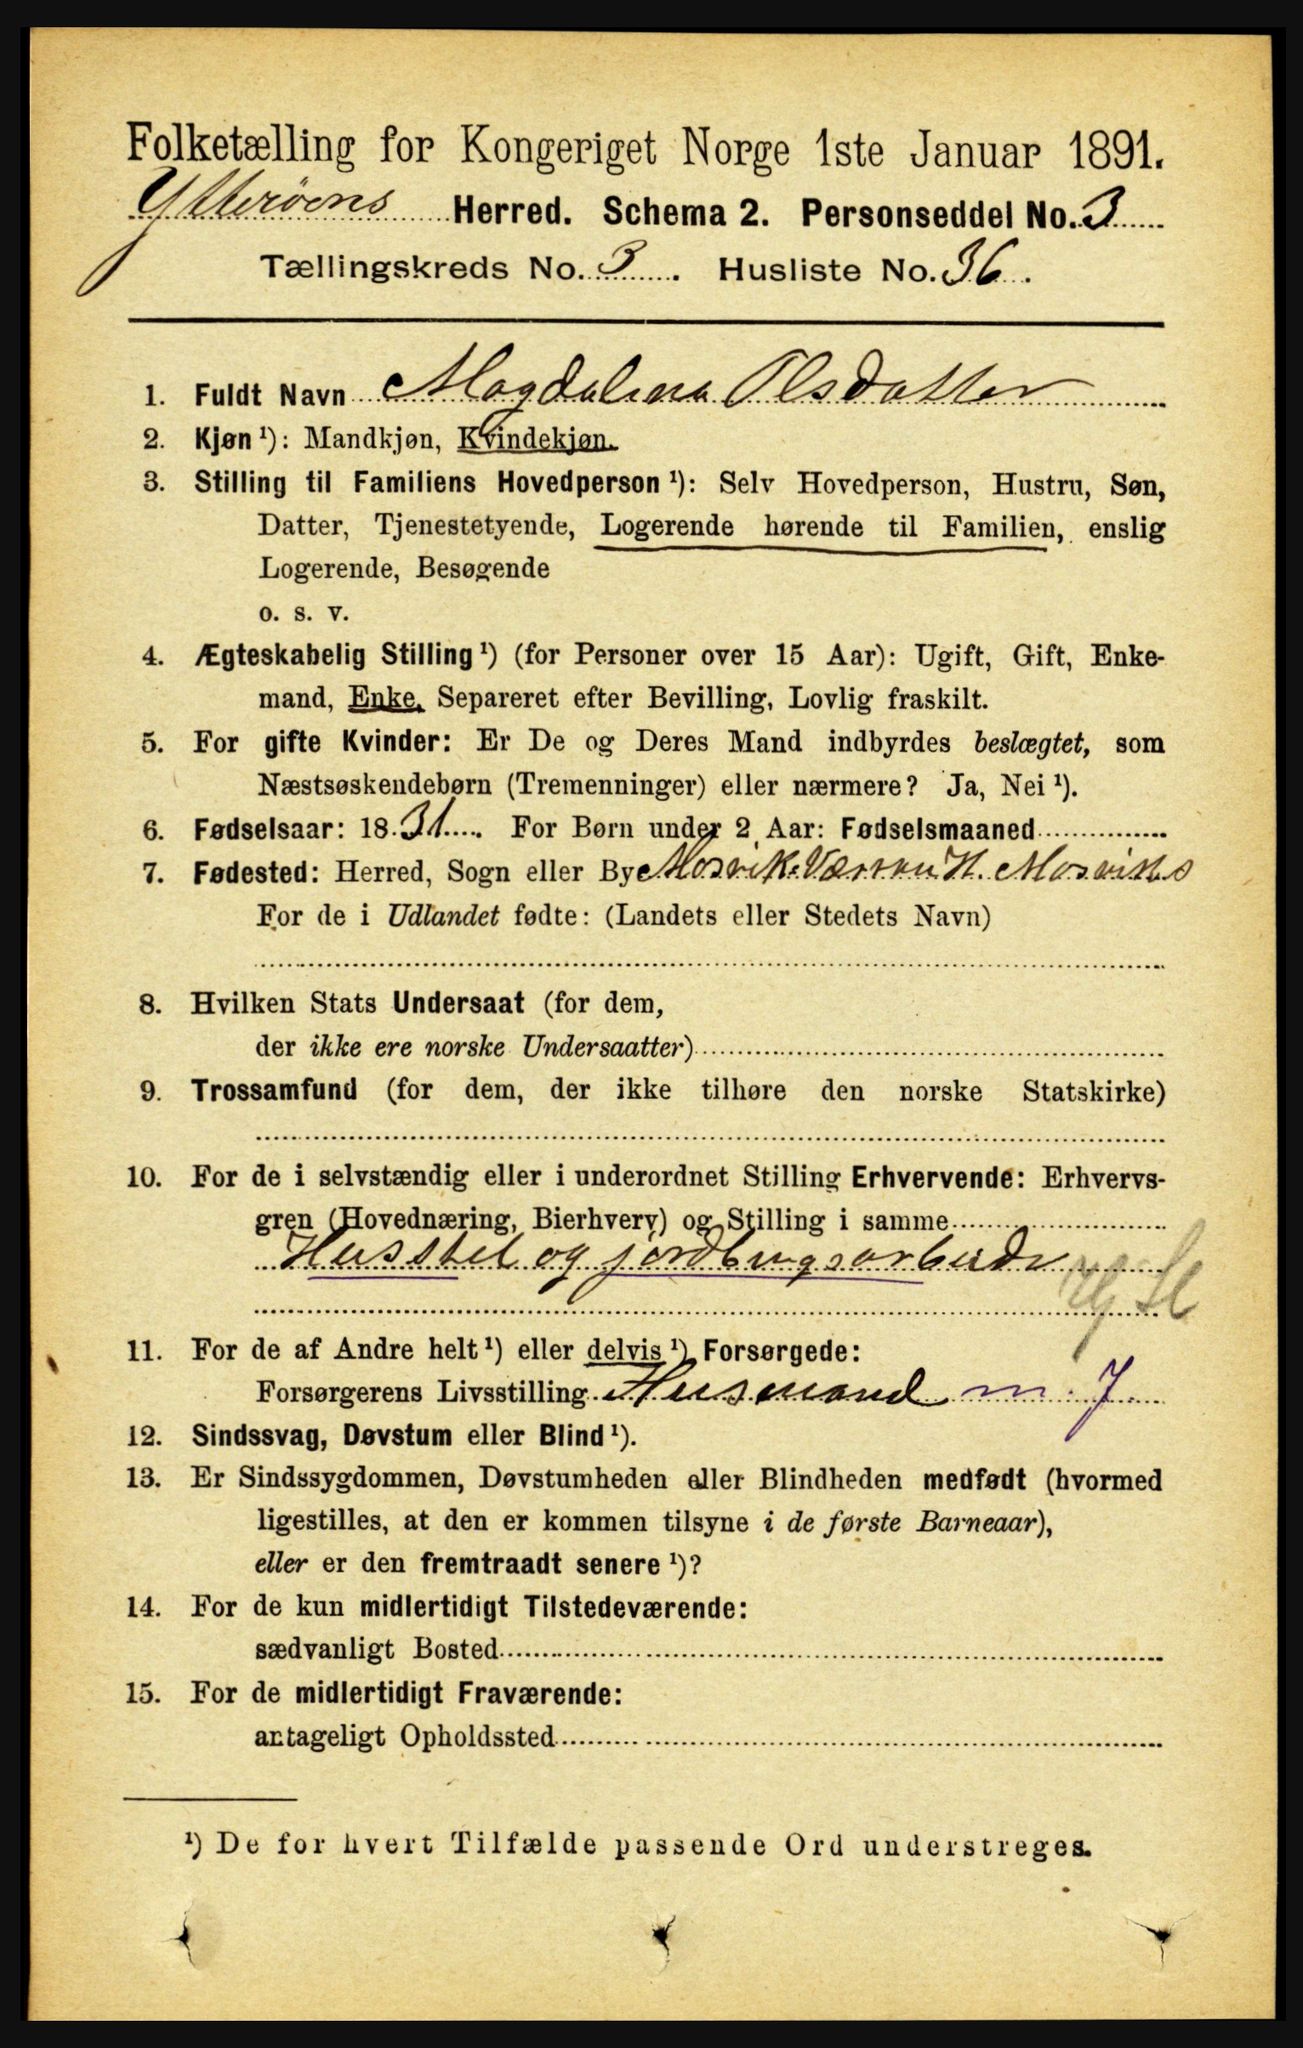 Folketælling for Kongeriget Norge 1ste Januar 1891.
Ytterøens Herred. Schema 2. Personseddel No. 3
Tællingskreds No. 3. Husliste No. 36.
1. Fuldt Navn Magdalena Olsdatter
2. Kjøn ¹): Mandkjøn, Kvindekjøn.
3. Stilling til Familiens Hovedperson ¹): Selv Hovedperson, Hustru, Søn,
Datter, Tjenestetyende, Logerende hørende til Familien, enslig
Logerende, Besøgende
o. s. v.
4. Ægteskabelig Stilling ¹) (for Personer over 15 Aar): Ugift, Gift, Enke-
mand, Enke, Separeret efter Bevilling, Lovlig fraskilt.
5. For gifte Kvinder: Er De og Deres Mand indbyrdes beslægtet, som
Næstsøskendebørn (Tremenninger) eller nærmere? Ja, Nei ¹).
6. Fødselsaar: 1831. For Børn under 2 Aar: Fødselsmaaned
7. Fødested: Herred, Sogn eller By Mosvik Værran H. Mosvik s
For de i Udlandet fødte: (Landets eller Stedets Navn)
8. Hvilken Stats Undersaat (for dem,
der ikke ere norske Undersaatter)
9. Trossamfund (for dem, der ikke tilhøre den norske Statskirke)
10. For de i selvstændig eller i underordnet Stilling Erhvervende: Erhvervs-
gren (Hovednæring, Bierhverv) og Stilling i samme
Husstel og jordbrugsarbeide
11. For de af Andre helt ¹) eller delvis ¹) Forsørgede:
Forsørgerens Livsstilling Husmand m. J.
12. Sindssvag, Døvstum eller Blind ¹).
13. Er Sindssygdommen, Døvstumheden eller Blindheden medfødt (hvormed
ligestilles, at den er kommen tilsyne i de første Barneaar),
eller er den fremtraadt senere ¹)?
14. For de kun midlertidigt Tilstedeværende:
sædvanligt Bosted
15. For de midlertidigt Fraværende:
antageligt Opholdssted
¹) De for hvert Tilfælde passende Ord understreges.